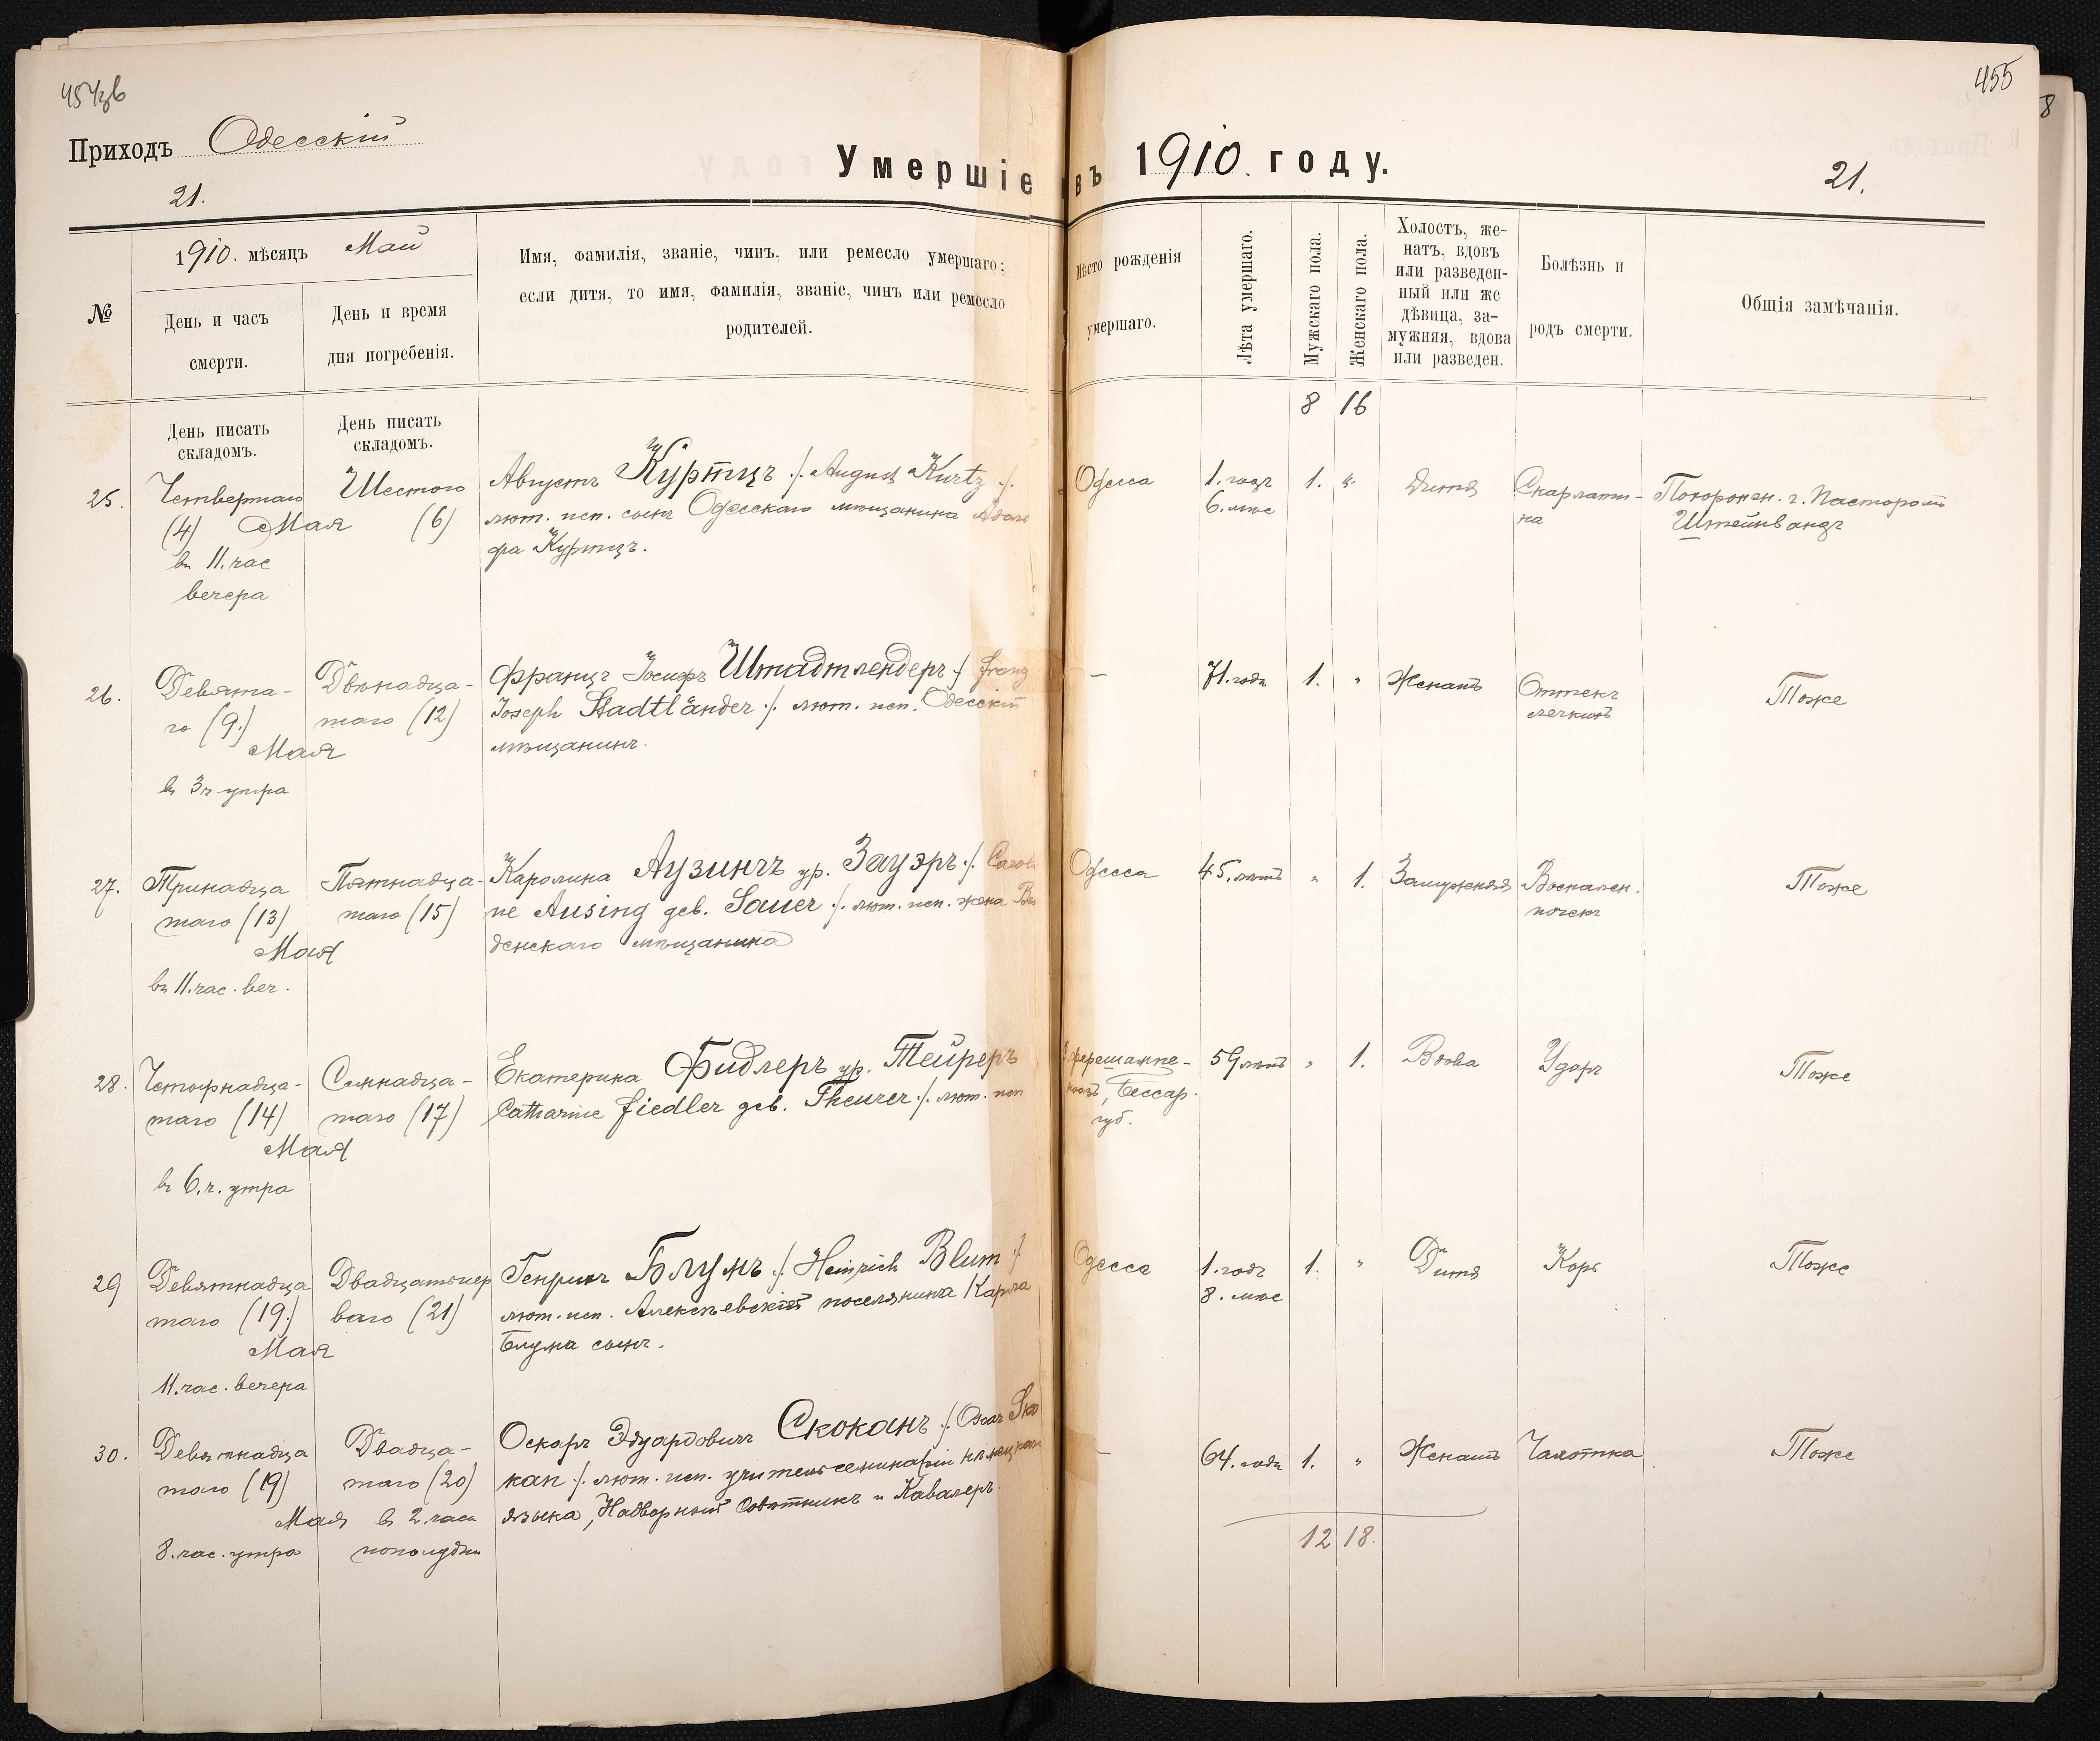 454 об
455
8
Приходъ Одесскій
Умершіе въ 1910 году.
21.
21.
№
1910. мѣсяцъ Май
День и часъ
смерти.
День и время
дня погребенія.
Имя, фамилія, званіе, чинъ, или ремесло умершаго;
если дитя, то имя, фамилія, званіе, чинъ или ремесло
родителей.
Мѣсто рожденія
умершаго.
Лѣта умершаго.
Мужскаго пола.
Женскаго пола.
Холостъ, же-
натъ, вдовъ
или разведен-
ный или же
дѣвица, за-
мужняя, вдова
или разведен.
Болѣзнь и
родъ смерти.
Общія замѣчанія.
День писать
складомъ.
День писать
складомъ.
8 16
25.
Четвертаго
(4) Мая
в 11. час
вечера
Шестого
(6)
Августъ Куртцъ ./. August Kurtz ./.
лют. исп. сынъ Одесскаго мѣщанина Адоль
фа Куртцъ.
Одесса
1. годъ
6. мѣс
1. "
Дитя
Скарлати-
на
Похоронен. г. Пасторомъ
Штейнвандъ
26.
Девята-
го (9.)
Мая
в 3 ч утра
Двѣнадца-
таго (12)
Францъ Іосифъ Штадтлендеръ ./. Franz
Joseph Stadtländer ./. лют. исп. Одесскій
мѣщанинъ.
—
71. года
1. "
Женатъ
Оттекъ
легкихъ
Тоже
27.
Тринадца
таго (13)
Мая
въ 11. час. веч.
Пятнадца-
таго (15)
Каролина Аузингъ ур. Зауэръ ./. Caroli
ne Ausing geb. Sauer ./. лют. исп. жена Вен
денскаго мѣщанина
Одесса
45. лѣтъ
" 1.
Замужняя
Воспален.
почекъ
Тоже
28.
Четырнадца-
таго (14)
Мая
в 6. ч. утра
Семнадца-
таго (17)
Екатерина Фидлеръ ур. Тейреръ
Catharine Fiedler geb. Theurer ./. лют. исп
Бессар.
губ.
59 лѣтъ
" 1.
Вдова
Ударъ
Тоже
29
Девятнадца
таго (19.)
Мая
11. час. вечера
Двадцатопер
ваго (21)
Генрихъ Блумъ ./. Heinrich Blum ./.
лют. исп. Алексѣевскій поселянина Карла
Блума сынъ.
Одесса
1. годъ
8. мѣс
1. "
Дитя
Корь
Тоже
30.
Девятнадца
таго (19)
Мая
8. час. утра
Двадца-
таго (20)
в 2. часа
пополудни
Оскаръ Эдуардовичъ Скоканъ ./. Oscar Sko
kan ./. лют. исп. учитель семинаріи нѣмецкаго
языка, Надворный Совѣтникъ и Кавалеръ.
—
64. года
1. "
Женатъ
Чахотка
Тоже
12 18.